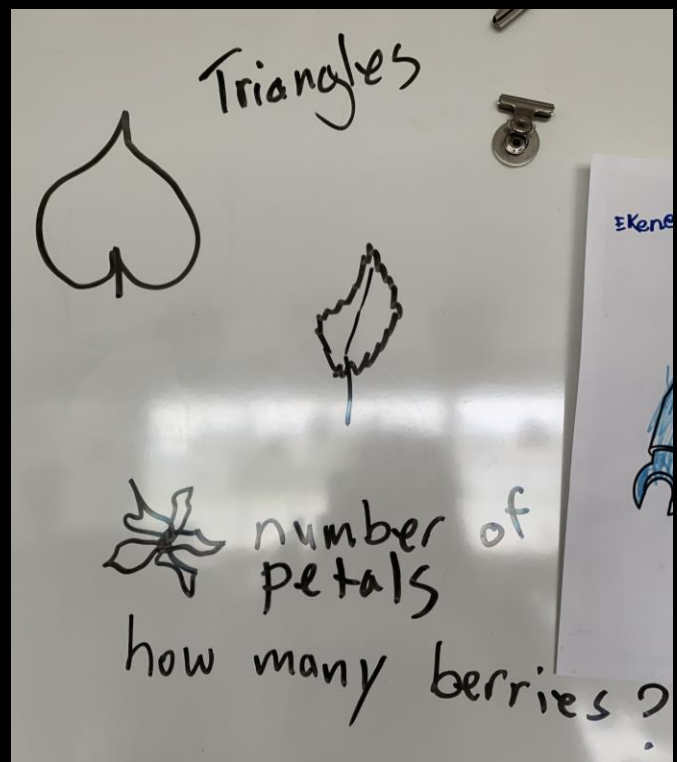 Triangles
number of
petals
how many berries?